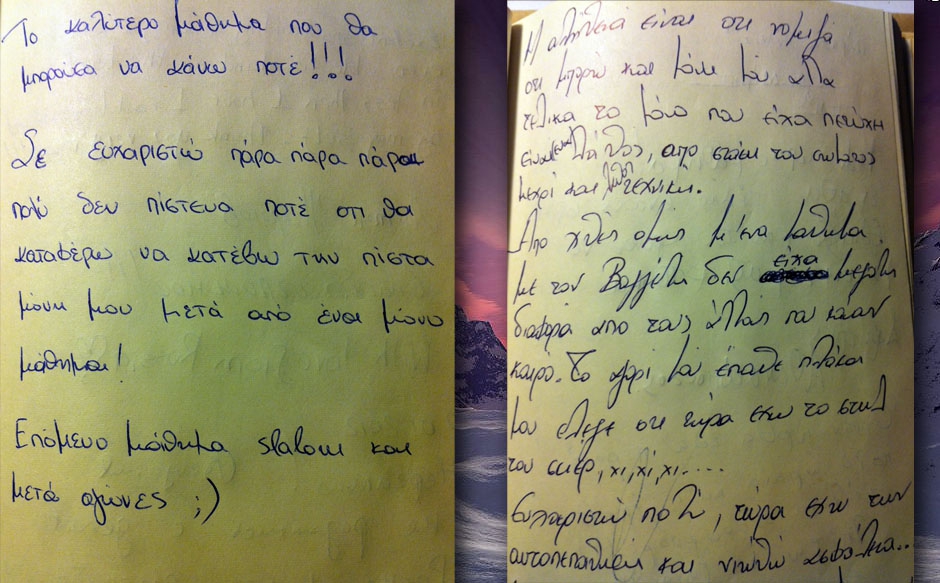 Το καλύτερο μάθημα που θα
μπορούσα να κάνω ποτέ!!!
Σε ευχαριστώ πάρα πάρα πάρα
πολύ δεν πίστευα ποτέ οτι θα
καταφέρω να κατέβω την πίστα
μόνη μου μετά από ένα μόνο
μάθημα!
Επόμενο μάθημα slalom και
μετά αγώνες ;)
Η αλήθεια είναι οτι νόμιζα
οτι μπορώ και μόνη μου αλλα
τελικα το μόνο που είχα πετύχη
λάθος, απο στάση του σωματος
μεχρι και λάθη τεχνικη.
Απο χθες ομως μ' ένα μαθημα
με τον Βαγγέλη δεν είχα μεγάλη
διαφορα απο τους άλλους που κάναν
καιρο. Το αγόρι μου έπαθε πλάκα
μου ελεγε οτι τώρα εχω το στυλ
του σκιερ, χι, χι, χι.....
Ευχαριστώ πολύ, τώρα εχω την
αυτοπεποίθηση και νιώθω ασφάλεια..